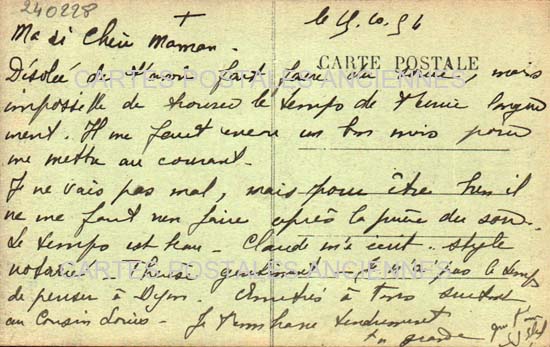 240228
le 15.10.56
Ma si Chère Maman.
CARTE POSTALE
Désolée de t'avoir fait faire du souci, mais
CARTES POSTALES ANCIENNES
impossible de trouver le temps de t'écrire longue
ment. Il me faut encore un bon mois pour
me mettre au courant.
Je ne vais pas mal, mais pour être bien il
ne me faut rien faire après la purée du soir.
Le temps est beau - Claude m'écrit. style
CARTES POSTALES ANCIENNES
notaire - pas le temps
de penser à Dijon. Amitiés à tous surtout
au Cousin Louis. Je t'embrasse tendrement
ta grande